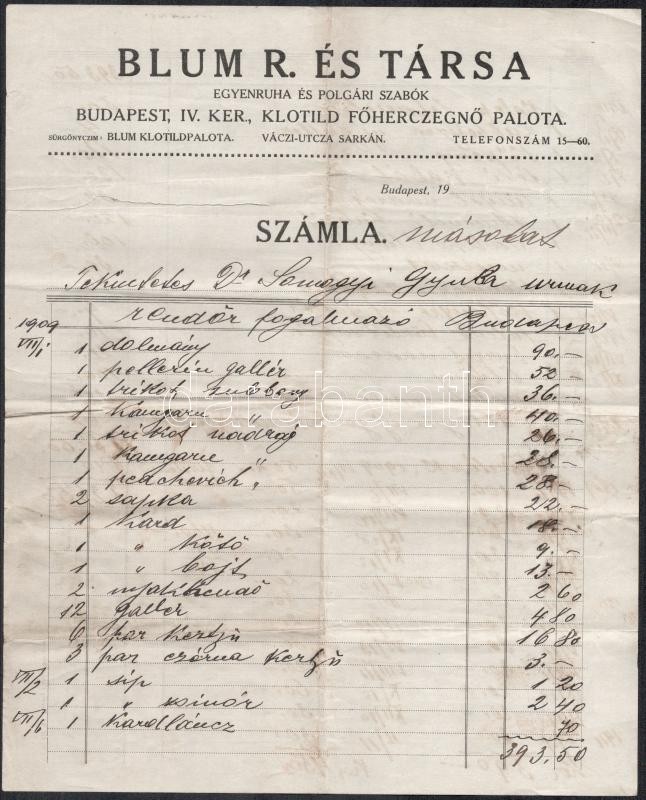 BLUM R. ÉS TÁRSA
EGYENRUHA ÉS POLGÁRI SZABÓK
BUDAPEST, IV. KER., KLOTILD FŐHERCZEGNŐ PALOTA.
SÜRGÖNYCZIM: BLUM KLOTILDPALOTA. VÁCZI-UTCZA SARKÁN. TELEFONSZÁM 15—60.
Budapest, 19
SZÁMLA. másolat
Tekintetes Dr Somogyi Gyula urnak
1909 rendőr fogalmazó Budapest
VIII/1 1 dolmány 90.—
1 pellerin gallér 52 —
1 trikot zubbony 36.—
1 Kamgarn " 40.—
1 trikot nadrág 26.—
1 Kamgarn " 28.—
1 " 28.—
2 sapka 22.—
1 Kard 18.—
1 " Kötő 9.—
1 " bojt 13.—
2 nyakkendő 2 60
12 Gallér 4 80
6 par Keztyü 16 80
3 par czérna Keztyü 3.—
1 sip 1 20
1 " zsinór 2 40
1 Kardláncz 70
393.50
darabanth